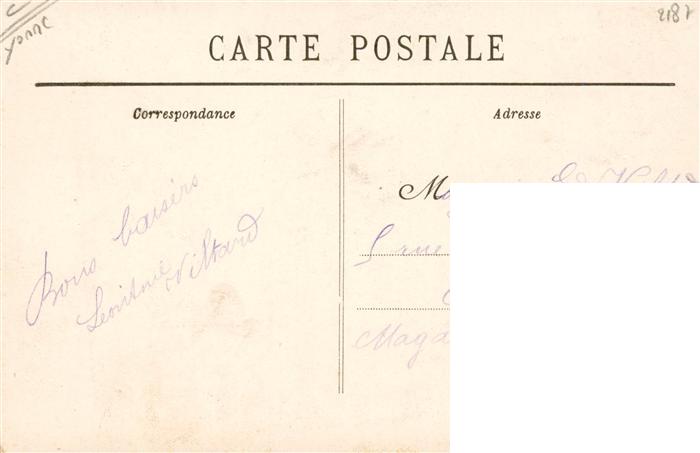 Yonne
2187
CARTE POSTALE
Correspondance
Adresse
Bons baisers
Villard
M
5 rue
Magd